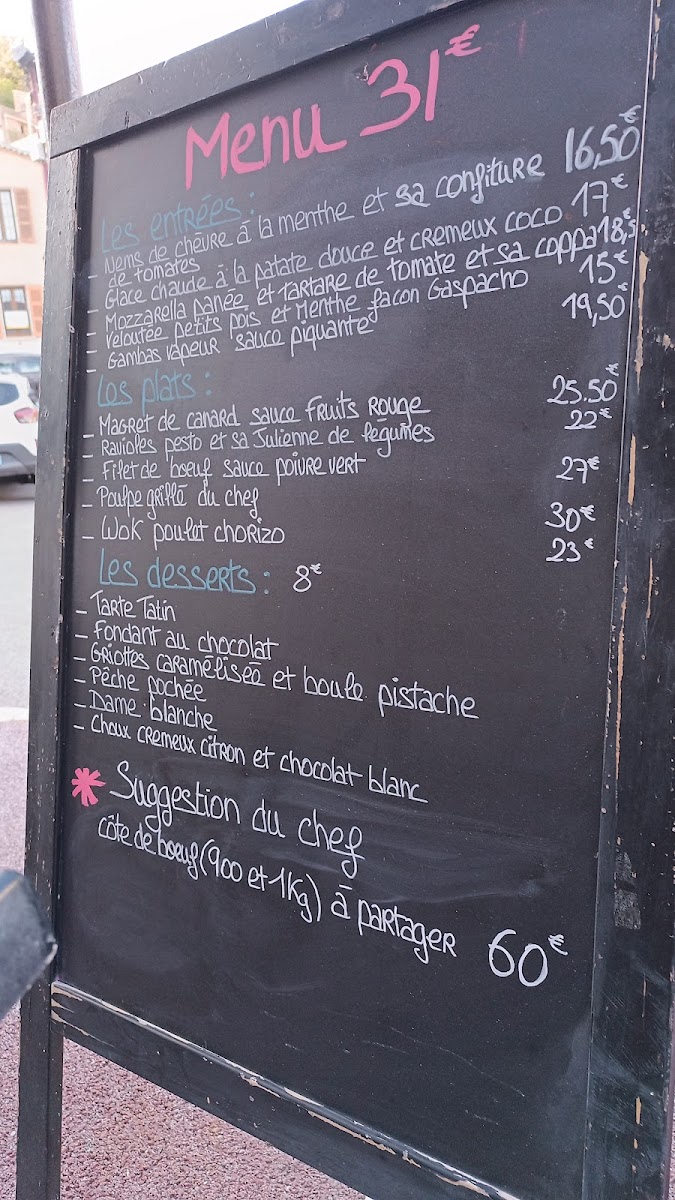 Menu 31€
Les entrées :
- Nems de chèvre à la menthe et sa confiture 16,50€
de tomates
- Glace chaude à la patate douce et cremeux coco 17€
- Mozzarella panée et tartare de tomate et sa coppa 18,5€
- Veloutée petits pois et Menthe façon Gaspacho 15€
- Gambas vapeur sauce piquante 19,50€
Les plats :
- Magret de canard sauce Fruits Rouge 25.50€
- Ravioles pesto et sa Julienne de légumes 22€
- Filet de boeuf sauce poivre vert 27€
- Poulpe grillé du chef 30€
- Wok poulet chorizo 23€
Les desserts : 8€
- Tarte Tatin
- Fondant au chocolat
- Griottes caramélisée et boule pistache
- Pêche pochée
- Dame blanche
- Choux cremeux citron et chocolat blanc
* Suggestion du chef
côte de boeuf (900 et 1Kg) à partager 60€